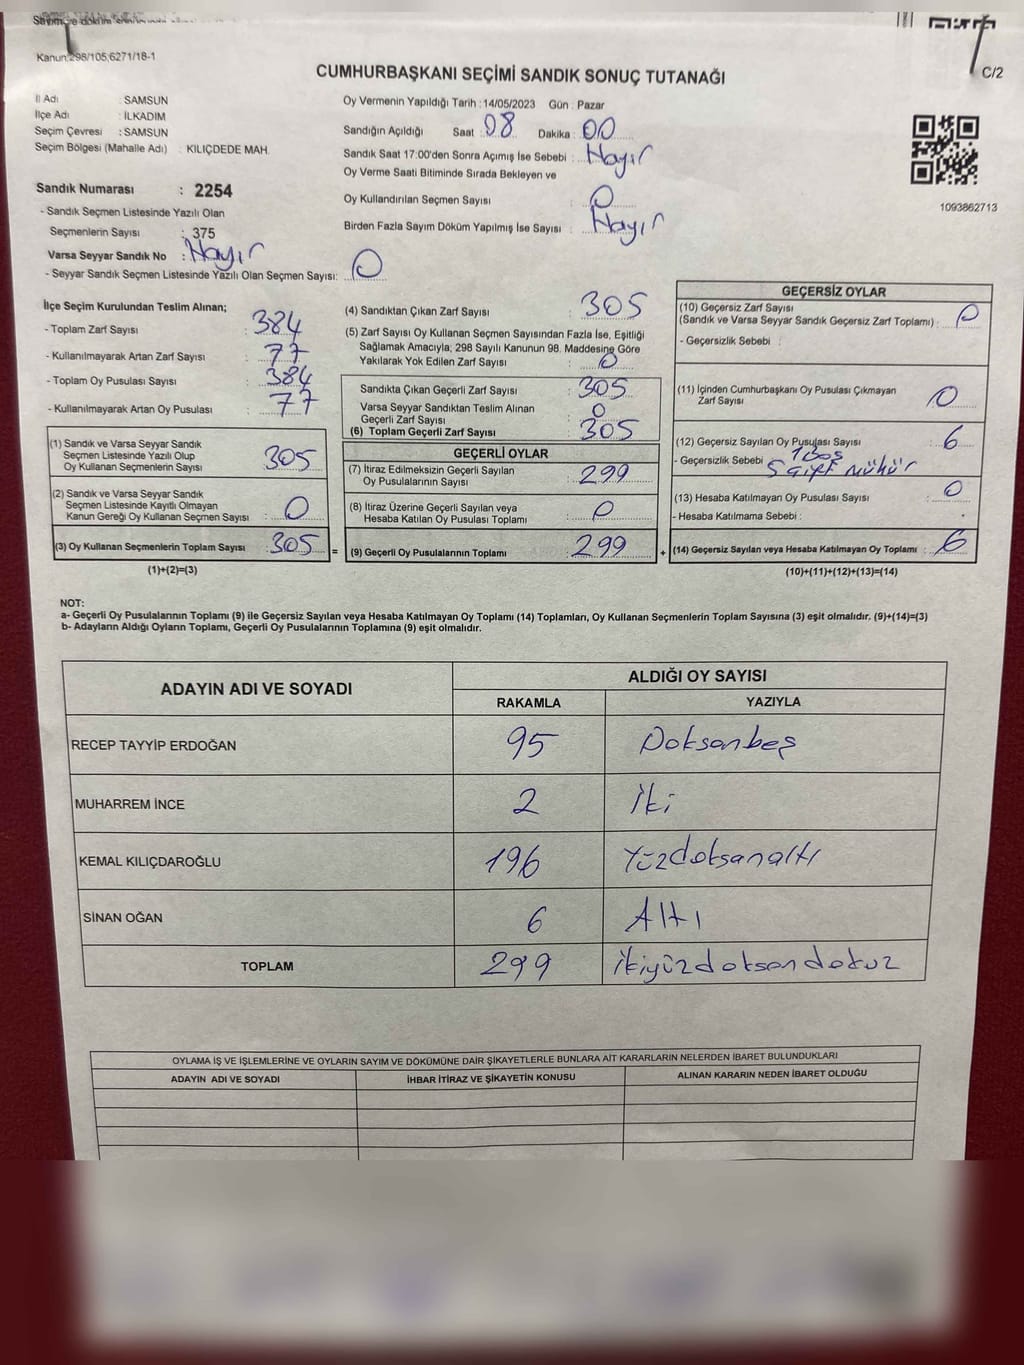 Kanun:298/105;6271/18-1
C/2
CUMHURBAŞKANI SEÇİMİ SANDIK SONUÇ TUTANAĞI
İl Adı : SAMSUN
İlçe Adı : İLKADIM
Seçim Çevresi : SAMSUN
Seçim Bölgesi (Mahalle Adı) : KILIÇDEDE MAH.
Sandık Numarası : 2254
- Sandık Seçmen Listesinde Yazılı Olan
Seçmenlerin Sayısı : 375
Varsa Seyyar Sandık No : Hayır
- Seyyar Sandık Seçmen Listesinde Yazılı Olan Seçmen Sayısı: 0
Oy Vermenin Yapıldığı Tarih : 14/05/2023 Gün : Pazar
Sandığın Açıldığı Saat : 08 Dakika : 00
Sandık Saat 17:00'den Sonra Açımış İse Sebebi : Hayır
Oy Verme Saati Bitiminde Sırada Bekleyen ve
Oy Kullandırılan Seçmen Sayısı : 0
Birden Fazla Sayım Döküm Yapılmış İse Sayısı : Hayır
1093862713
İlçe Seçim Kurulundan Teslim Alınan;
- Toplam Zarf Sayısı : 384
- Kullanılmayarak Artan Zarf Sayısı : 77
- Toplam Oy Pusulası Sayısı : 384
- Kullanılmayarak Artan Oy Pusulası : 77
(1) Sandık ve Varsa Seyyar Sandık
Seçmen Listesinde Yazılı Olup
Oy Kullanan Seçmenlerin Sayısı : 305
(2) Sandık ve Varsa Seyyar Sandık
Seçmen Listesinde Kayıtlı Olmayan
Kanun Gereği Oy Kullanan Seçmen Sayısı : 0
(3) Oy Kullanan Seçmenlerin Toplam Sayısı : 305 =
(1)+(2)=(3)
(4) Sandıktan Çıkan Zarf Sayısı : 305
(5) Zarf Sayısı Oy Kullanan Seçmen Sayısından Fazla İse, Eşitliği
Sağlamak Amacıyla; 298 Sayılı Kanunun 98. Maddesine Göre
Yakılarak Yok Edilen Zarf Sayısı : 0
Sandıkta Çıkan Geçerli Zarf Sayısı : 305
Varsa Seyyar Sandıktan Teslim Alınan
Geçerli Zarf Sayısı : 0
(6) Toplam Geçerli Zarf Sayısı : 305
GEÇERLİ OYLAR
(7) İtiraz Edilmeksizin Geçerli Sayılan
Oy Pusulalarının Sayısı : 299
(8) İtiraz Üzerine Geçerli Sayılan veya
Hesaba Katılan Oy Pusulası Toplamı : 0
(9) Geçerli Oy Pusulalarının Toplamı : 299 +
GEÇERSİZ OYLAR
(10) Geçersiz Zarf Sayısı
(Sandık ve Varsa Seyyar Sandık Geçersiz Zarf Toplamı) : 0
- Geçersizlik Sebebi :
(11) İçinden Cumhurbaşkanı Oy Pusulası Çıkmayan
Zarf Sayısı : 0
(12) Geçersiz Sayılan Oy Pusulası Sayısı : 6
- Geçersizlik Sebebi : 1 Boş
5 Çift Mühür
(13) Hesaba Katılmayan Oy Pusulası Sayısı : 0
- Hesaba Katılmama Sebebi :
(14) Geçersiz Sayılan veya Hesaba Katılmayan Oy Toplamı : 6
(10)+(11)+(12)+(13)=(14)
NOT:
a- Geçerli Oy Pusulalarının Toplamı (9) ile Geçersiz Sayılan veya Hesaba Katılmayan Oy Toplamı (14) Toplamları, Oy Kullanan Seçmenlerin Toplam Sayısına (3) eşit olmalıdır, (9)+(14)=(3)
b- Adayların Aldığı Oyların Toplamı, Geçerli Oy Pusulalarının Toplamına (9) eşit olmalıdır.
ADAYIN ADI VE SOYADI
ALDIĞI OY SAYISI
RAKAMLA YAZIYLA
RECEP TAYYİP ERDOĞAN 95 Doksanbeş
MUHARREM İNCE 2 İki
KEMAL KILIÇDAROĞLU 196 Yüzdoksanaltı
SİNAN OĞAN 6 Altı
TOPLAM 299 İkiyüzdoksandokuz
OYLAMA İŞ VE İŞLEMLERİNE VE OYLARIN SAYIM VE DÖKÜMÜNE DAİR ŞİKAYETLERLE BUNLARA AİT KARARLARIN NELERDEN İBARET BULUNDUKLARI
ADAYIN ADI VE SOYADI İHBAR İTİRAZ VE ŞİKAYETİN KONUSU ALINAN KARARIN NEDEN İBARET OLDUĞU